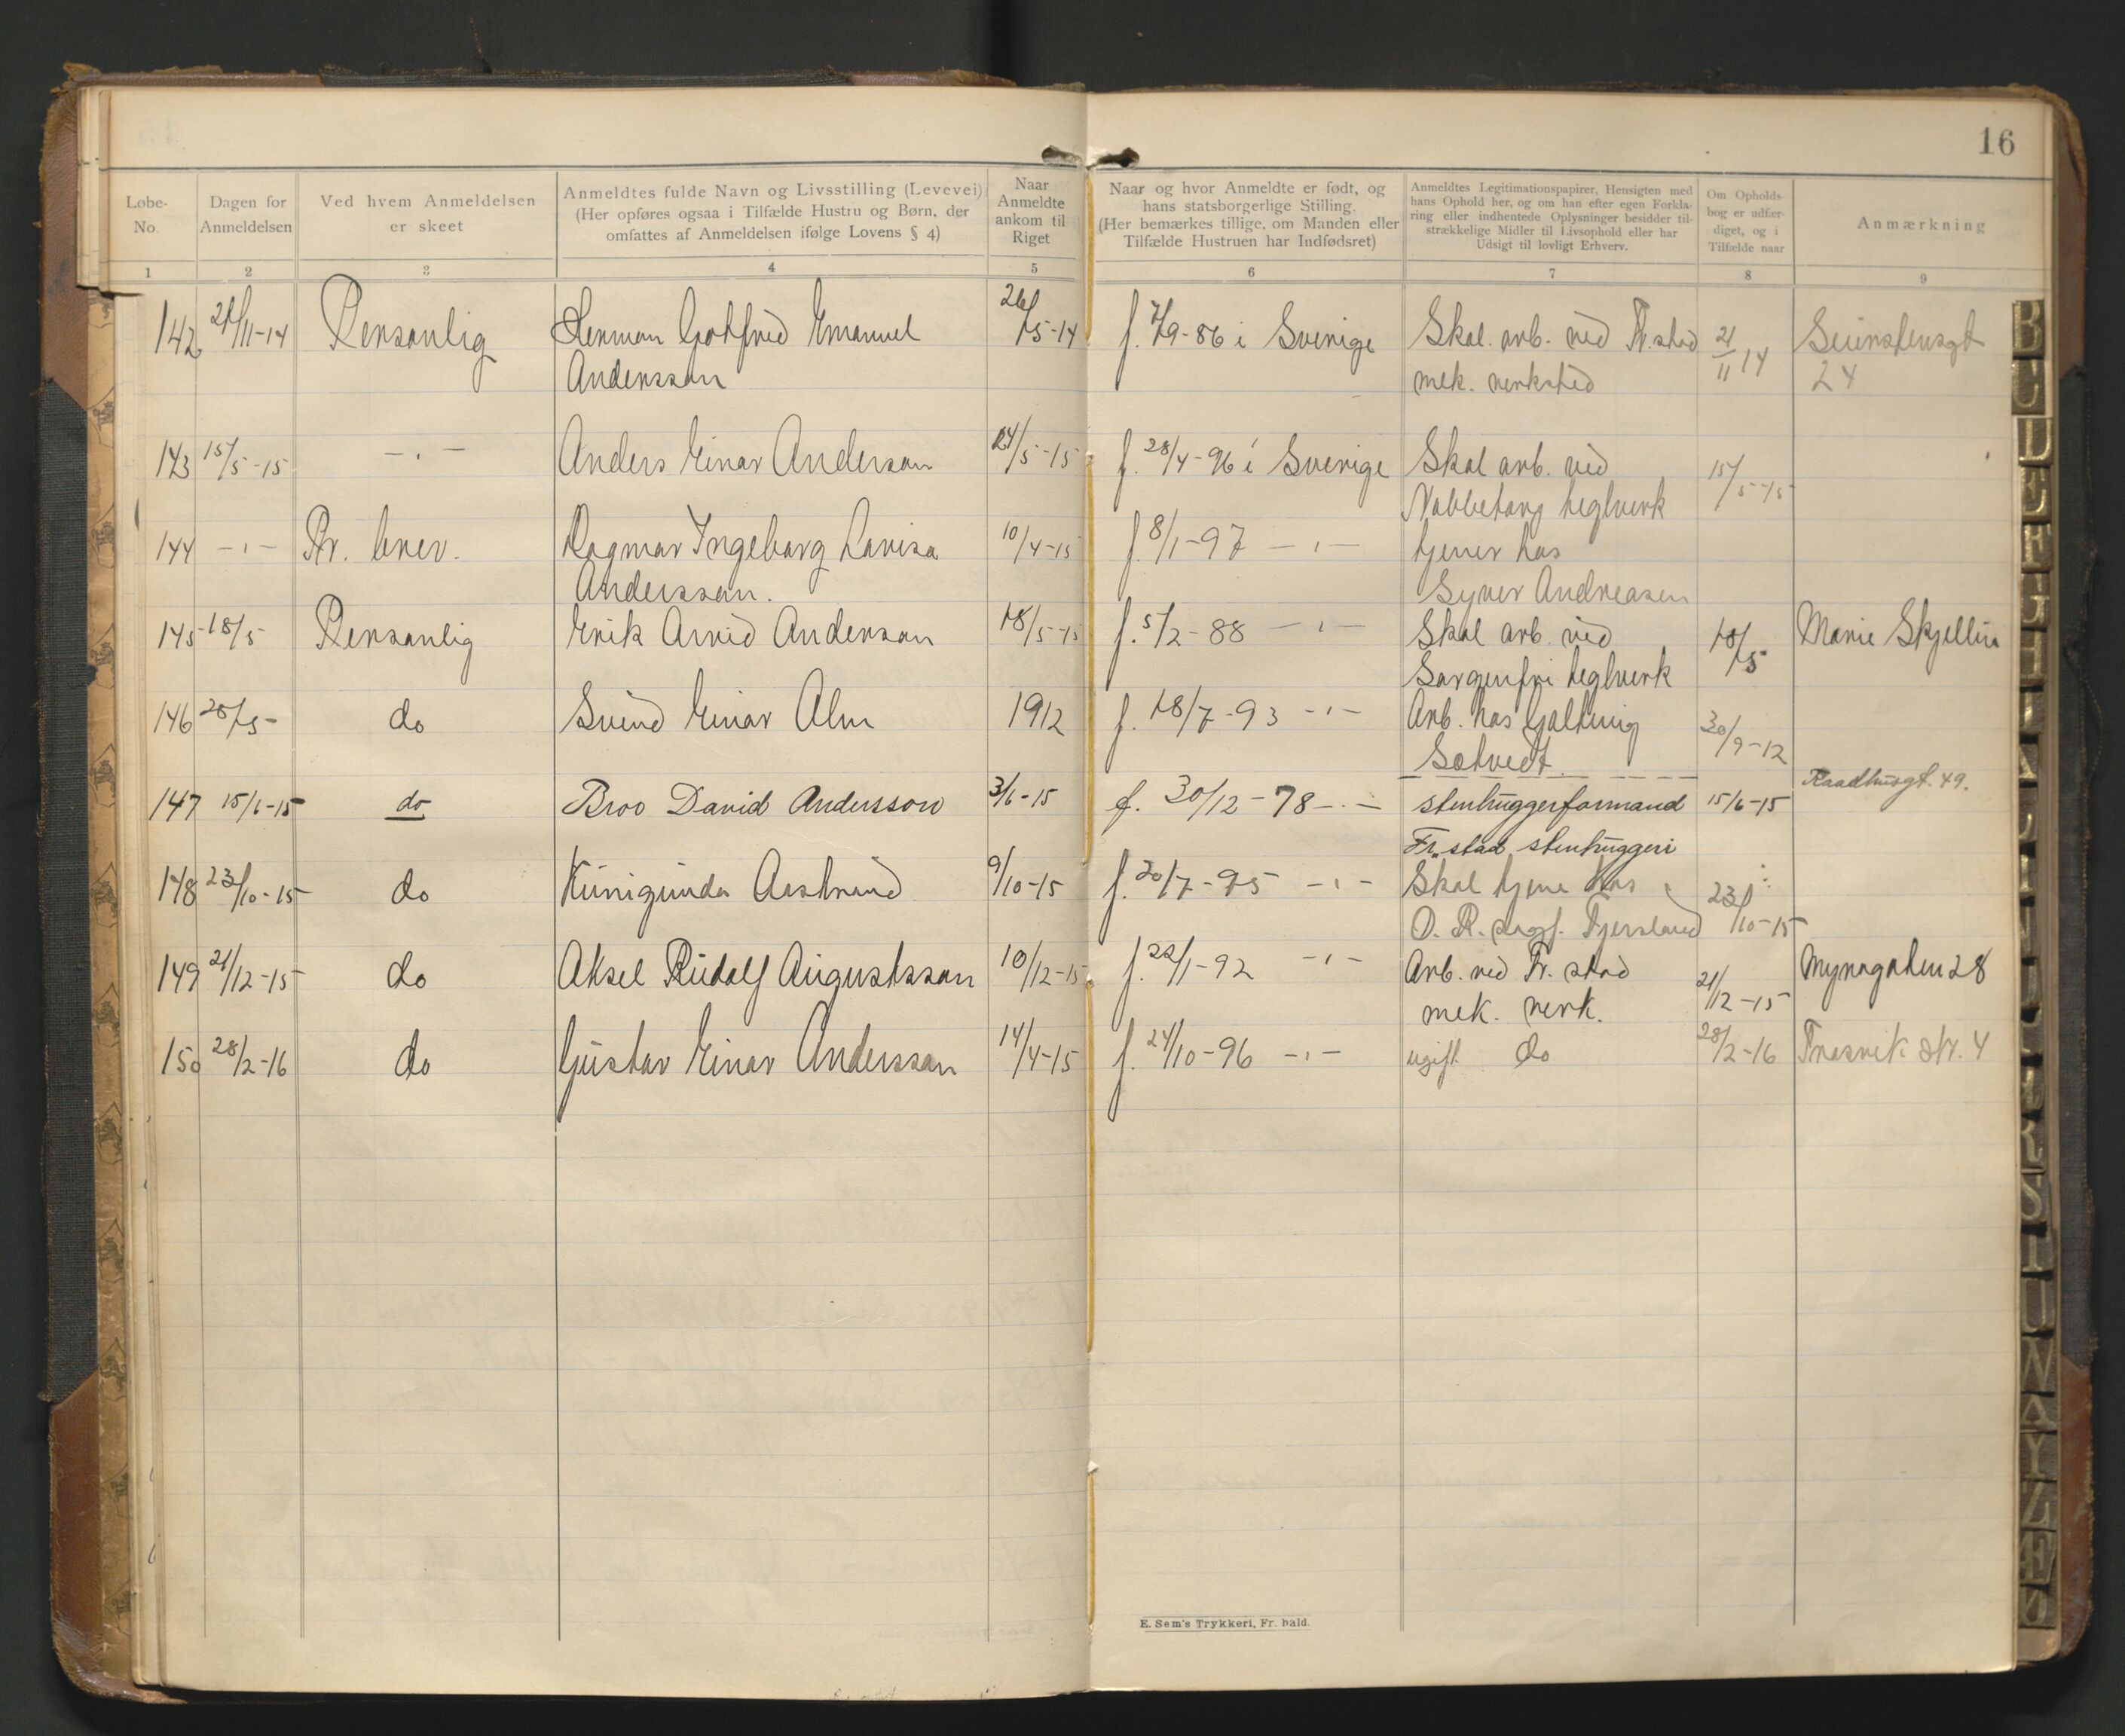 16
Løbe-No. Dagen for Anmeldelsen Ved hvem Anmeldelsen er skeet Anmeldtes fulde Navn og Livsstilling (Levevei) (Her opføres ogsaa i Tilfælde Hustru og Børn, der omfattes af Anmeldelsen ifølge Lovens § 4) Naar Anmeldte ankom til Riget Naar og hvor Anmeldte er født, og hans statsborgerlige Stilling. (Her bemærkes tillige, om Manden eller Tilfælde Hustruen har Indfødsret) Anmeldtes Legitimationspapirer, Hensigten med hans Ophold her, og om han efter egen Forklaring eller indhentede Oplysninger besidder tilstrækkelige Midler til Livsophold eller har Udsigt til lovligt Erhverv. Om Opholdsbog er udfærdiget, og i Tilfælde naar Anmærkning
1 2 3 4 5 6 7 8 9
142 21/11-14 Personlig Herman Gotfred Emanuel 26/5-14 f. 7/9-86 i Sverige Skal. arb. ved Fr.stad 21/11 14
Andersson mek. verksted 24
143 15/5-15 -"- Anders Einar Anderson 24/5-15 f. 28/4-96 i Sverige Skal arb. ved 15/5-15
Nabbetorp teglverk
144 -"- Pr. brev. Dagmar Ingeborg Lovisa 10/4-15 f. 8/1-97 -"- tjener hos
Andersson. Syver Andreasen
145 18/5 Personlig Erik Arvid Anderson 18/5-15 f. 5/2-88 -"- Skal arb. ved 18/5 Marie Skjellin
Sorgenfri teglverk
146 28/5- do Svend Einar Alm 1912 f. 18/7-93 -"- Arb. hos 30/9-12
147 15/6-15 do Broo David Andersson 3/6-15 f. 30/12-78 -"- stenhuggerformand 15/6-15 Raadhusgt. 49.
Fr.stad stenhuggeri
148 23/10-15 do Kunigunda Aastrand 9/10-15 f. 20/7-95 -"- Skal tjene hos 23/10-15
O. R.
149 21/12-15 do Aksel Rudolf Augustsson 10/12-15 f. 22/1-92 -"- Arb. ved Fr. stad 21/12-15 Myragaten 28
mek. verk.
150 28/2-16 do Gustav Einar Andersson 14/4-15 f. 24/10-96 -"- ugift do 28/2-16 Trosvik str. 4
E. Sem's Trykkeri, Fr. hald.
B
C
D
E
F
G